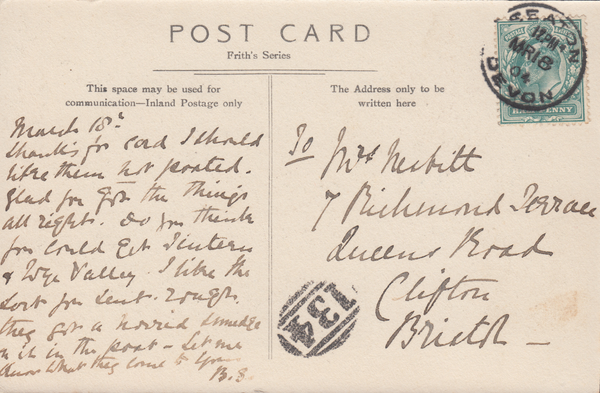 POST CARD
Frith's Series
This space may be used for
communication—Inland Postage only
The Address only to be
written here
March 18th
thanks for card I should
like them not posted.
glad you got the things
all right. do you think
you could get Tintern
& Wye Valley. I like the
sort you sent. rough.
they got a horrid smudge
on it in the post – Let me
know what they come to
B.S.
To Mrs Nesbitt
7 Richmond Terrace
Queens Road
Clifton
Bristol –
134
MR 18
04
DEVON
HALFPENNY